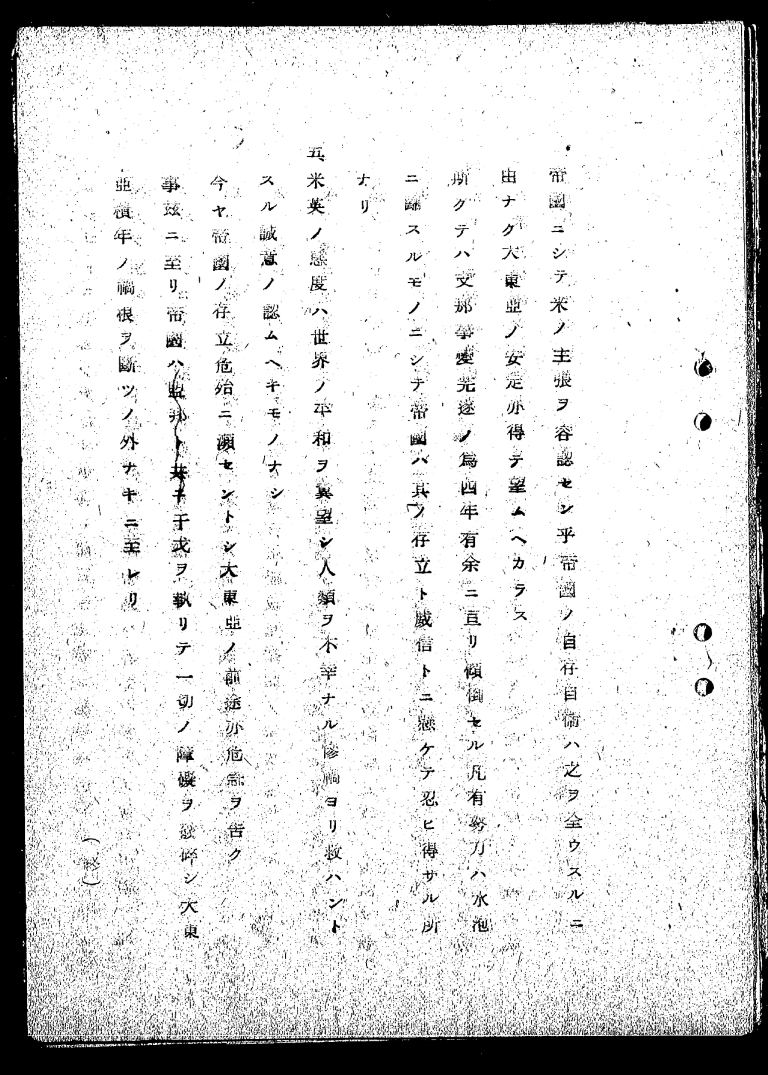 帝國ニシテ米ノ主張ヲ容認セン乎帝國ノ自存自衞ハ之ヲ全ウスルニ
由ナク大東亞ノ安定亦得テ望ムヘカラス
斯クテハ支那事變完遂ノ爲四年有余ニ亘リ傾倒セル凡有努力ハ水泡
ニ歸スルモノニシテ帝國ハ其ノ存立ト威信トニ懸ケテ忍ヒ得サル所
ナリ
五、米英ノ態度ハ世界ノ平和ヲ冀望シ人類ヲ不幸ナル慘禍ヨリ救ハント
スル誠意ノ認ムヘキモノナシ
今ヤ帝國ノ存立危殆ニ瀕セントシ大東亞ノ前途亦危急ヲ告ク
事玆ニ至リ帝國ハ盟邦ト共ニ干戈ヲ執リテ一切ノ障礙ヲ破碎シ大東
亞積年ノ禍根ヲ斷ツノ外ナキニ至レリ
（終）